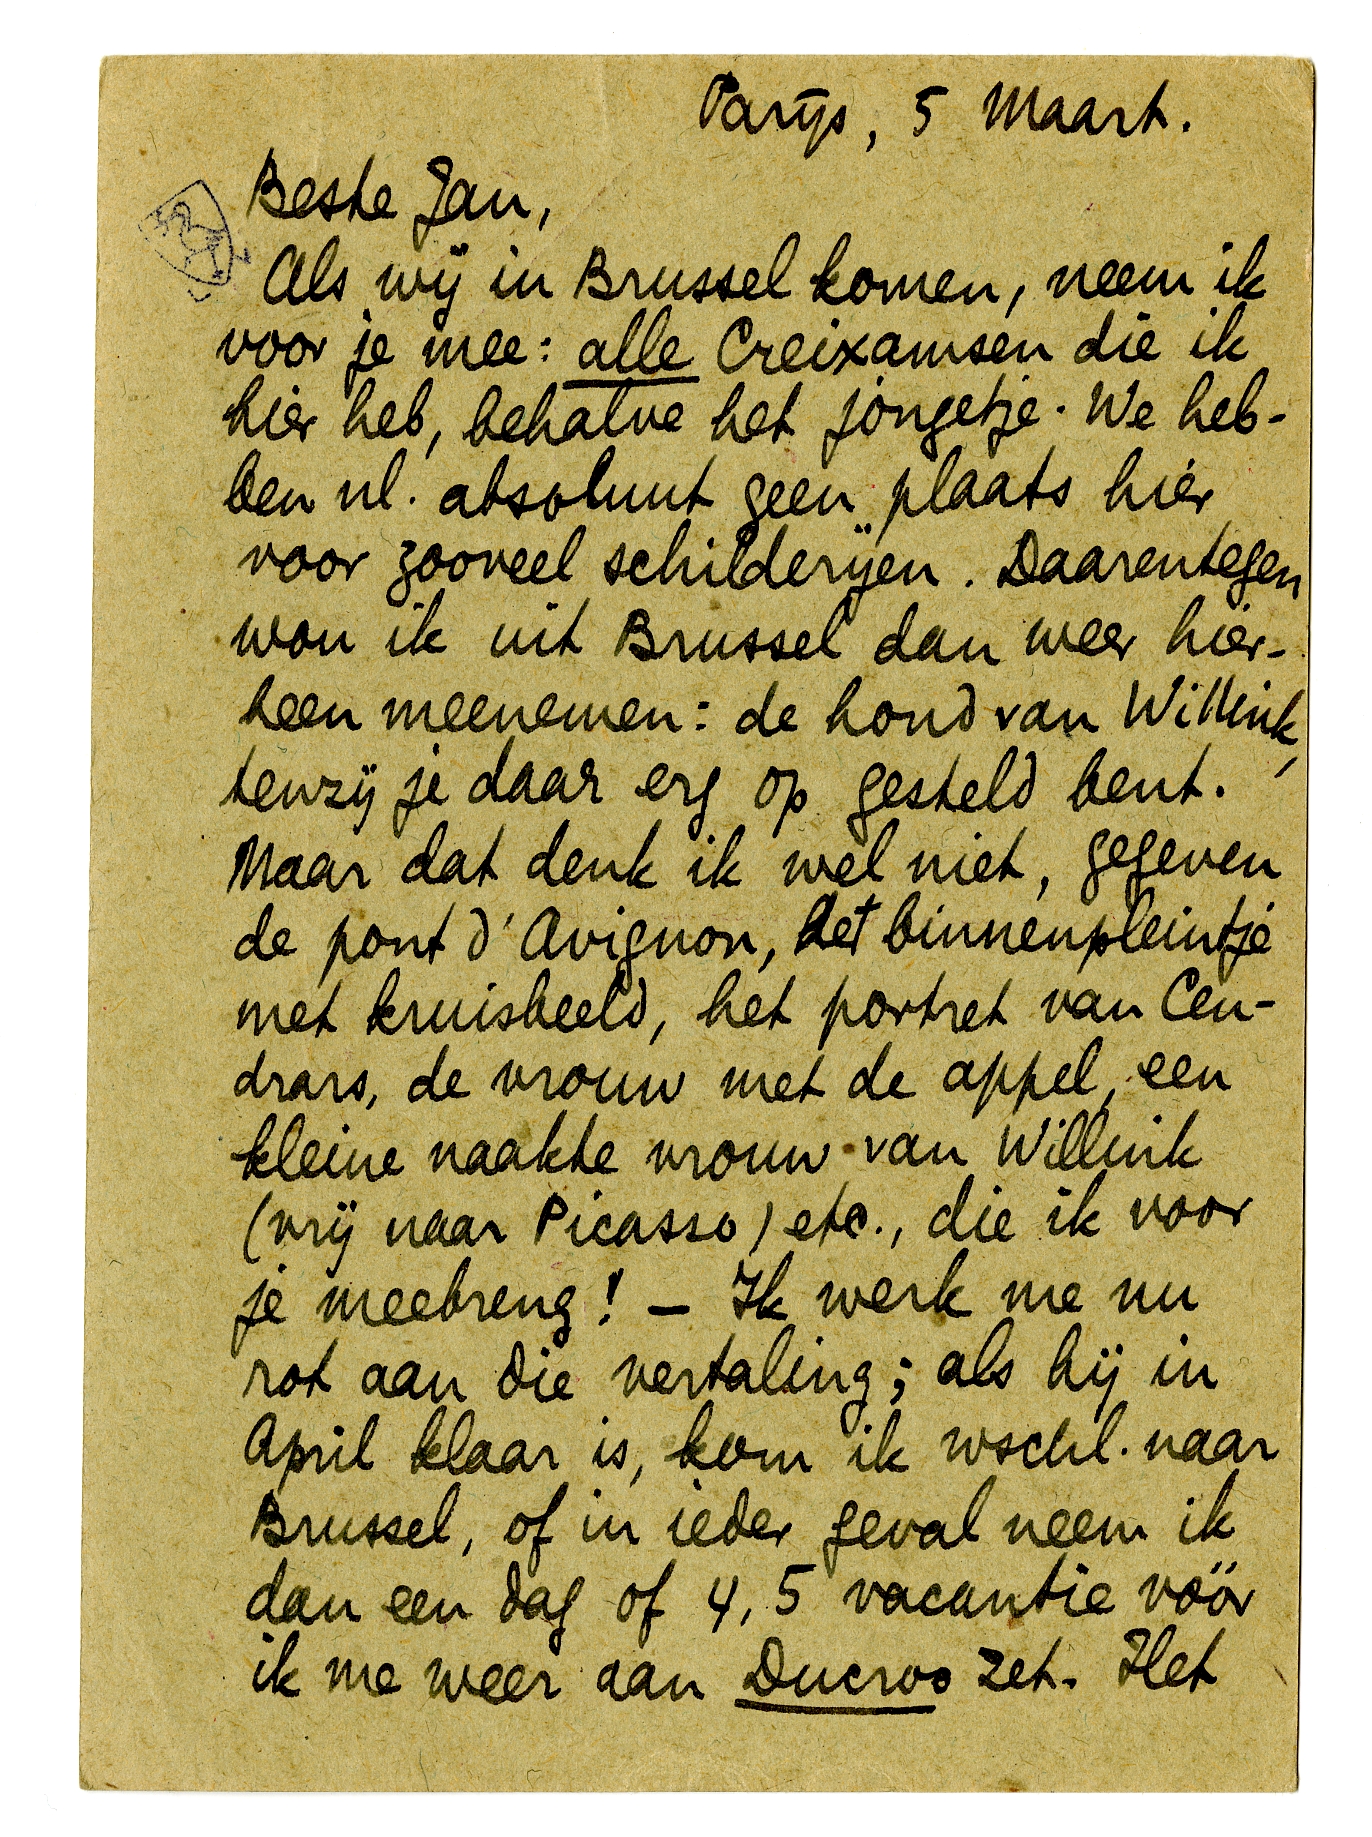 Parijs, 5 Maart.
Beste Jan,
Als wij in Brussel komen, neem ik
voor je mee: alle Creixamsen die ik
hier heb, behalve het jongetje. We heb-
ben nl. absoluut geen plaats hier
voor zooveel schilderijen. Daarentegen
wou ik uit Brussel dan weer hier-
heen meenemen: de hond van Willink,
tenzij je daar erg op gesteld bent.
Maar dat denk ik wel niet, gegeven
de pont d'Avignon, het binnenpleintje
met kruisbeeld, het portret van Cen-
drars, de vrouw met de appel, een
kleine naakte vrouw van Willink
(vrij naar Picasso) etc., die ik voor
je meebreng! — Ik werk me nu
rot aan die vertaling; als hij in
April klaar is, kom ik wschl. naar
Brussel, of in ieder geval neem ik
dan een dag of 4, 5 vacantie vóór
ik me weer aan Ducroo zet. Het